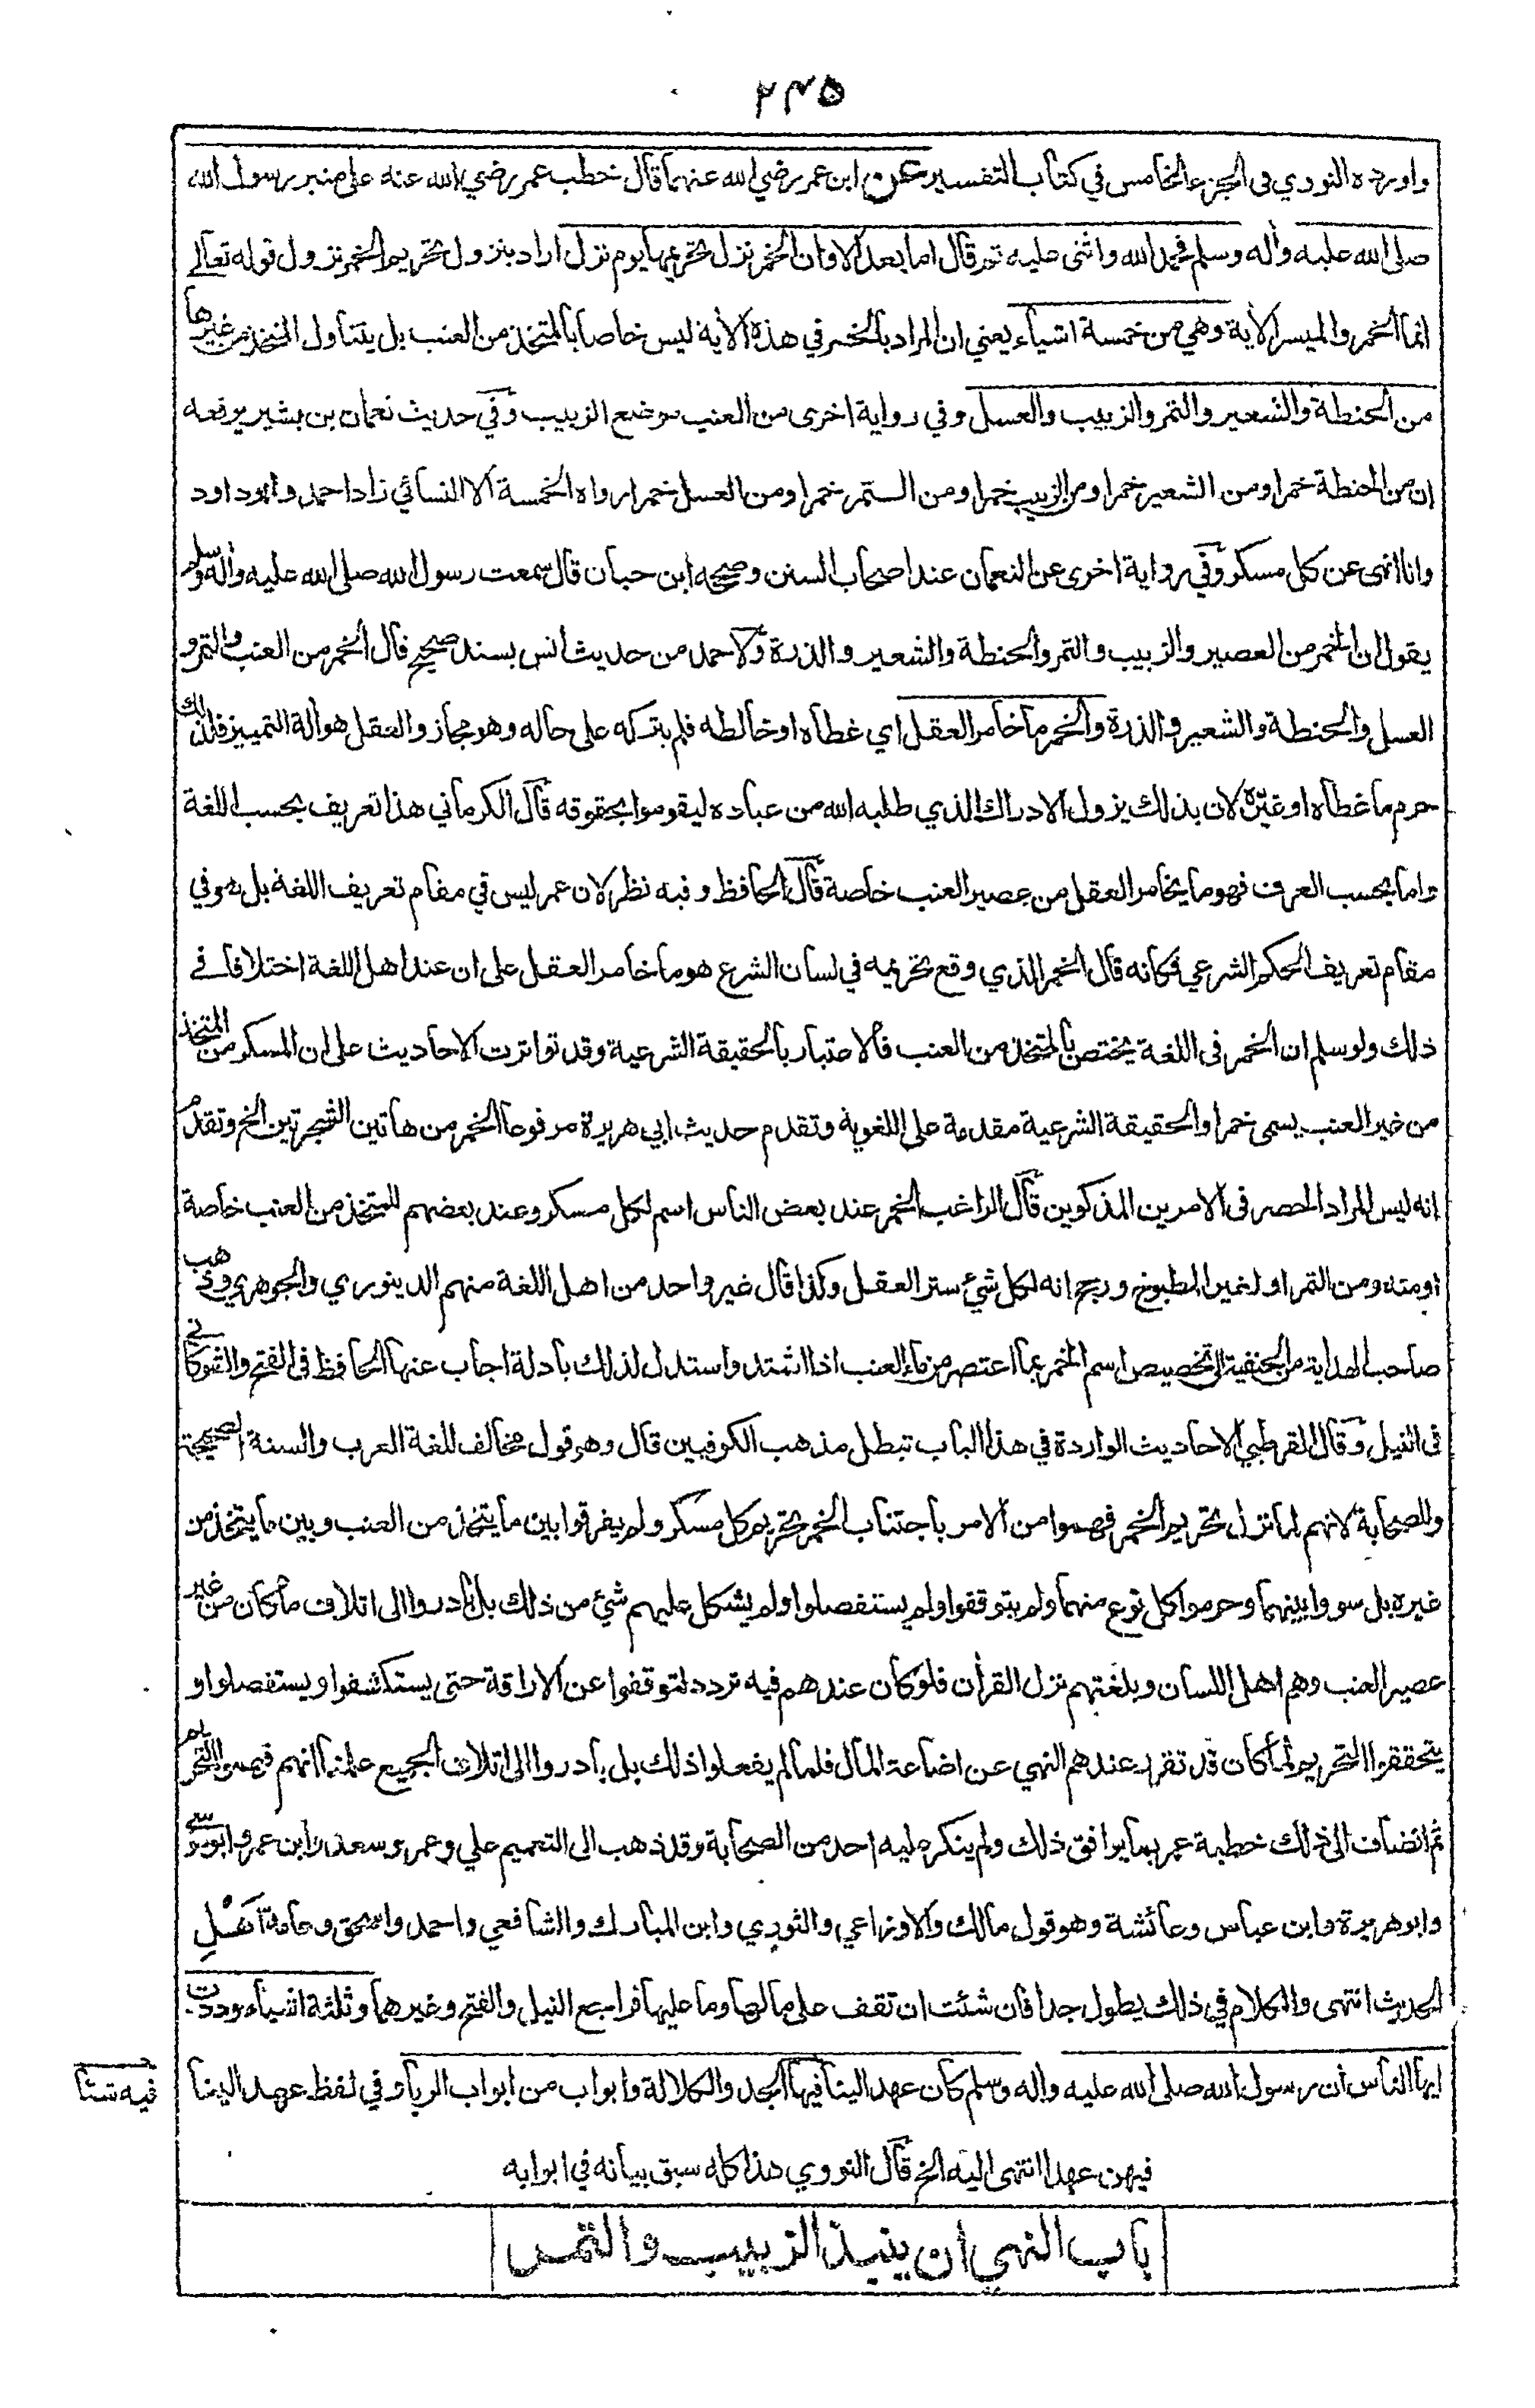 ٢٣٥
واورده النووي فى الجزء الخامس في كتاب التفسير عن ابن عمر رضي الله عنهما قال خطب عمر رضي الله عنه على منبر رسول الله
صلى الله عليه وأله وسلم فحمد الله واثنى عليه ثم قال اما بعد الا وان الخمر نزل تحريمها يوم نزل اراد بنزول تحريم الخمر نزول قوله تعالى
انما الخمر والميسر الأية وهي من خمسة اشياء يعني ان المراد بالخمر في هذه الأية ليس خاصا بالمتخذ من العنب بل يتناول المتخذ من غيرها
من الحنطة والشعير والتمر والزبيب والعسل وفي رواية اخرى من العنب موضع الزبيب وفي حديث نعمان بن بشير يرفعه
ان من الحنطة خمرا ومن الشعير خمرا ومن الزبيب خمرا ومن التمر خمرا ومن العسل خمرا رواه الخمسة الا النسائي زاد احمد وابو داود
وانا انهى عن كل مسكر وفي رواية اخرى عن النعمان عند اصحاب السنن وصححه ابن حبان قال سمعت رسول الله صلى الله عليه واله وسلم
يقول ان الخمر من العصير والزبيب والتمر والحنطة والشعير والذرة ولاحمد من حديث انس بسند صحيح قال الخمر من العنب والتمر و
العسل والحنطة والشعير والذرة والخمر ما خامر العقل اي غطاه او خالطه فلم يتركه على حاله وهو مجاز والعقل هو ألة التمييز فلذلك
حرم ما غطاه او غيّره لان بذلك يزول الادراك الذي طلبه الله من عباده ليقوموا بحقوقه قال الكرماني هذا تعريف بحسب اللغة
واما بحسب العرف فهو ما يخامر العقل من عصير العنب خاصة قال الحافظ وفيه نظر لان عمر ليس في مقام تعريف اللغة بل هو في
مقام تعريف الحكم الشرعي فكانه قال الخمر الذي وقع تحريمه في لسان الشرع هو ما خامر العقل على ان عند اهل اللغة اختلافا في
ذلك ولو سلم ان الخمر فى اللغة يختص بالمتخذ من العنب فالاعتبار بالحقيقة الشرعية وقد تواترت الاحاديث على ان المسكر من المتخذ
من غير العنب يسمى خمرا والحقيقة الشرعية مقدمة على اللغوية وتقدم حديث ابي هريرة مرفوعا الخمر من هاتين الشجرتين الخ وتقدم
انه ليس المراد الحصر فى الامرين المذكوين قال الراغب الخمر عند بعض الناس اسم لكل مسكر وعند بعضهم للمتخذ من العنب خاصة
او منه ومن التمر او لغير المطبوخ ورجح انه لكل شيئ ستر العقل وكذا قال غير واحد من اهل اللغة منهم الدينوري والجوهري وذهب
صاحب الهداية من الحنفية الى تخصيص اسم الخمر بما اعتصر من ماء العنب اذا اشتد واستدل لذلك بادلة اجاب عنها الحافظ فى الفتح والشوكاني
فى النيل وقال القرطبي الاحاديث الواردة في هذا الباب تبطل مذهب الكوفيين قال وهو قول مخالف للغة العرب والسنة الصحيحة
وللصحابة لانهم لما نزل تحريم الخمر فهموا من الامر باجتناب الخمر تحريم كل مسكر ولم يفرقوا بين ما يتخذ من العنب وبين ما يتخذ من
غيره بل سووا بينهما وحرموا كل نوع منهما ولم يتوقفوا ولم يستفصلوا ولم يشكل عليهم شيئ من ذلك بل بادروا الى اتلاف ما كان من غير
عصير العنب وهم اهل اللسان وبلغتهم نزل القرأن فلو كان عندهم فيه تردد لتوقفوا عن الاراقة حتى يستكشفوا ويستفصلوا و
يتحققوا التحريم لما كان قد تقرر عندهم النهي عن اضاعة المال فلما لم يفعلوا ذلك بل بادروا الى اتلاف الجميع علمنا انهم فهموا التحريم
ثم انضاف الى ذلك خطبة عمر بما يوافق ذلك ولم ينكر عليه احد من الصحابة وقد ذهب الى التعميم علي وعمر وسعد وابن عمر وابو موسى
وابو هريرة وابن عباس وعائشة وهو قول مالك والاوزاعي والثوري وابن المبارك والشافعي واحمد واسحق وعامة اَهْلِ
الحديث انتهى والكلام في ذلك يطول جدا فان شئت ان تقف على ما لها وما عليها فراجع النيل والفتح وغيرهما وثلثة اشياء وددت
ايها الناس ان رسول الله صلى الله عليه واله وسلم كان عهد الينا فيها الجد والكلالة وابواب من ابواب الربا وفي لفظ عهد الينا
فيهن عهدا انتهى اليه الخ قال النووي هذا كله سبق بيانه في ابوابه
باب النهى ان ينبذ الزبيب والتمر